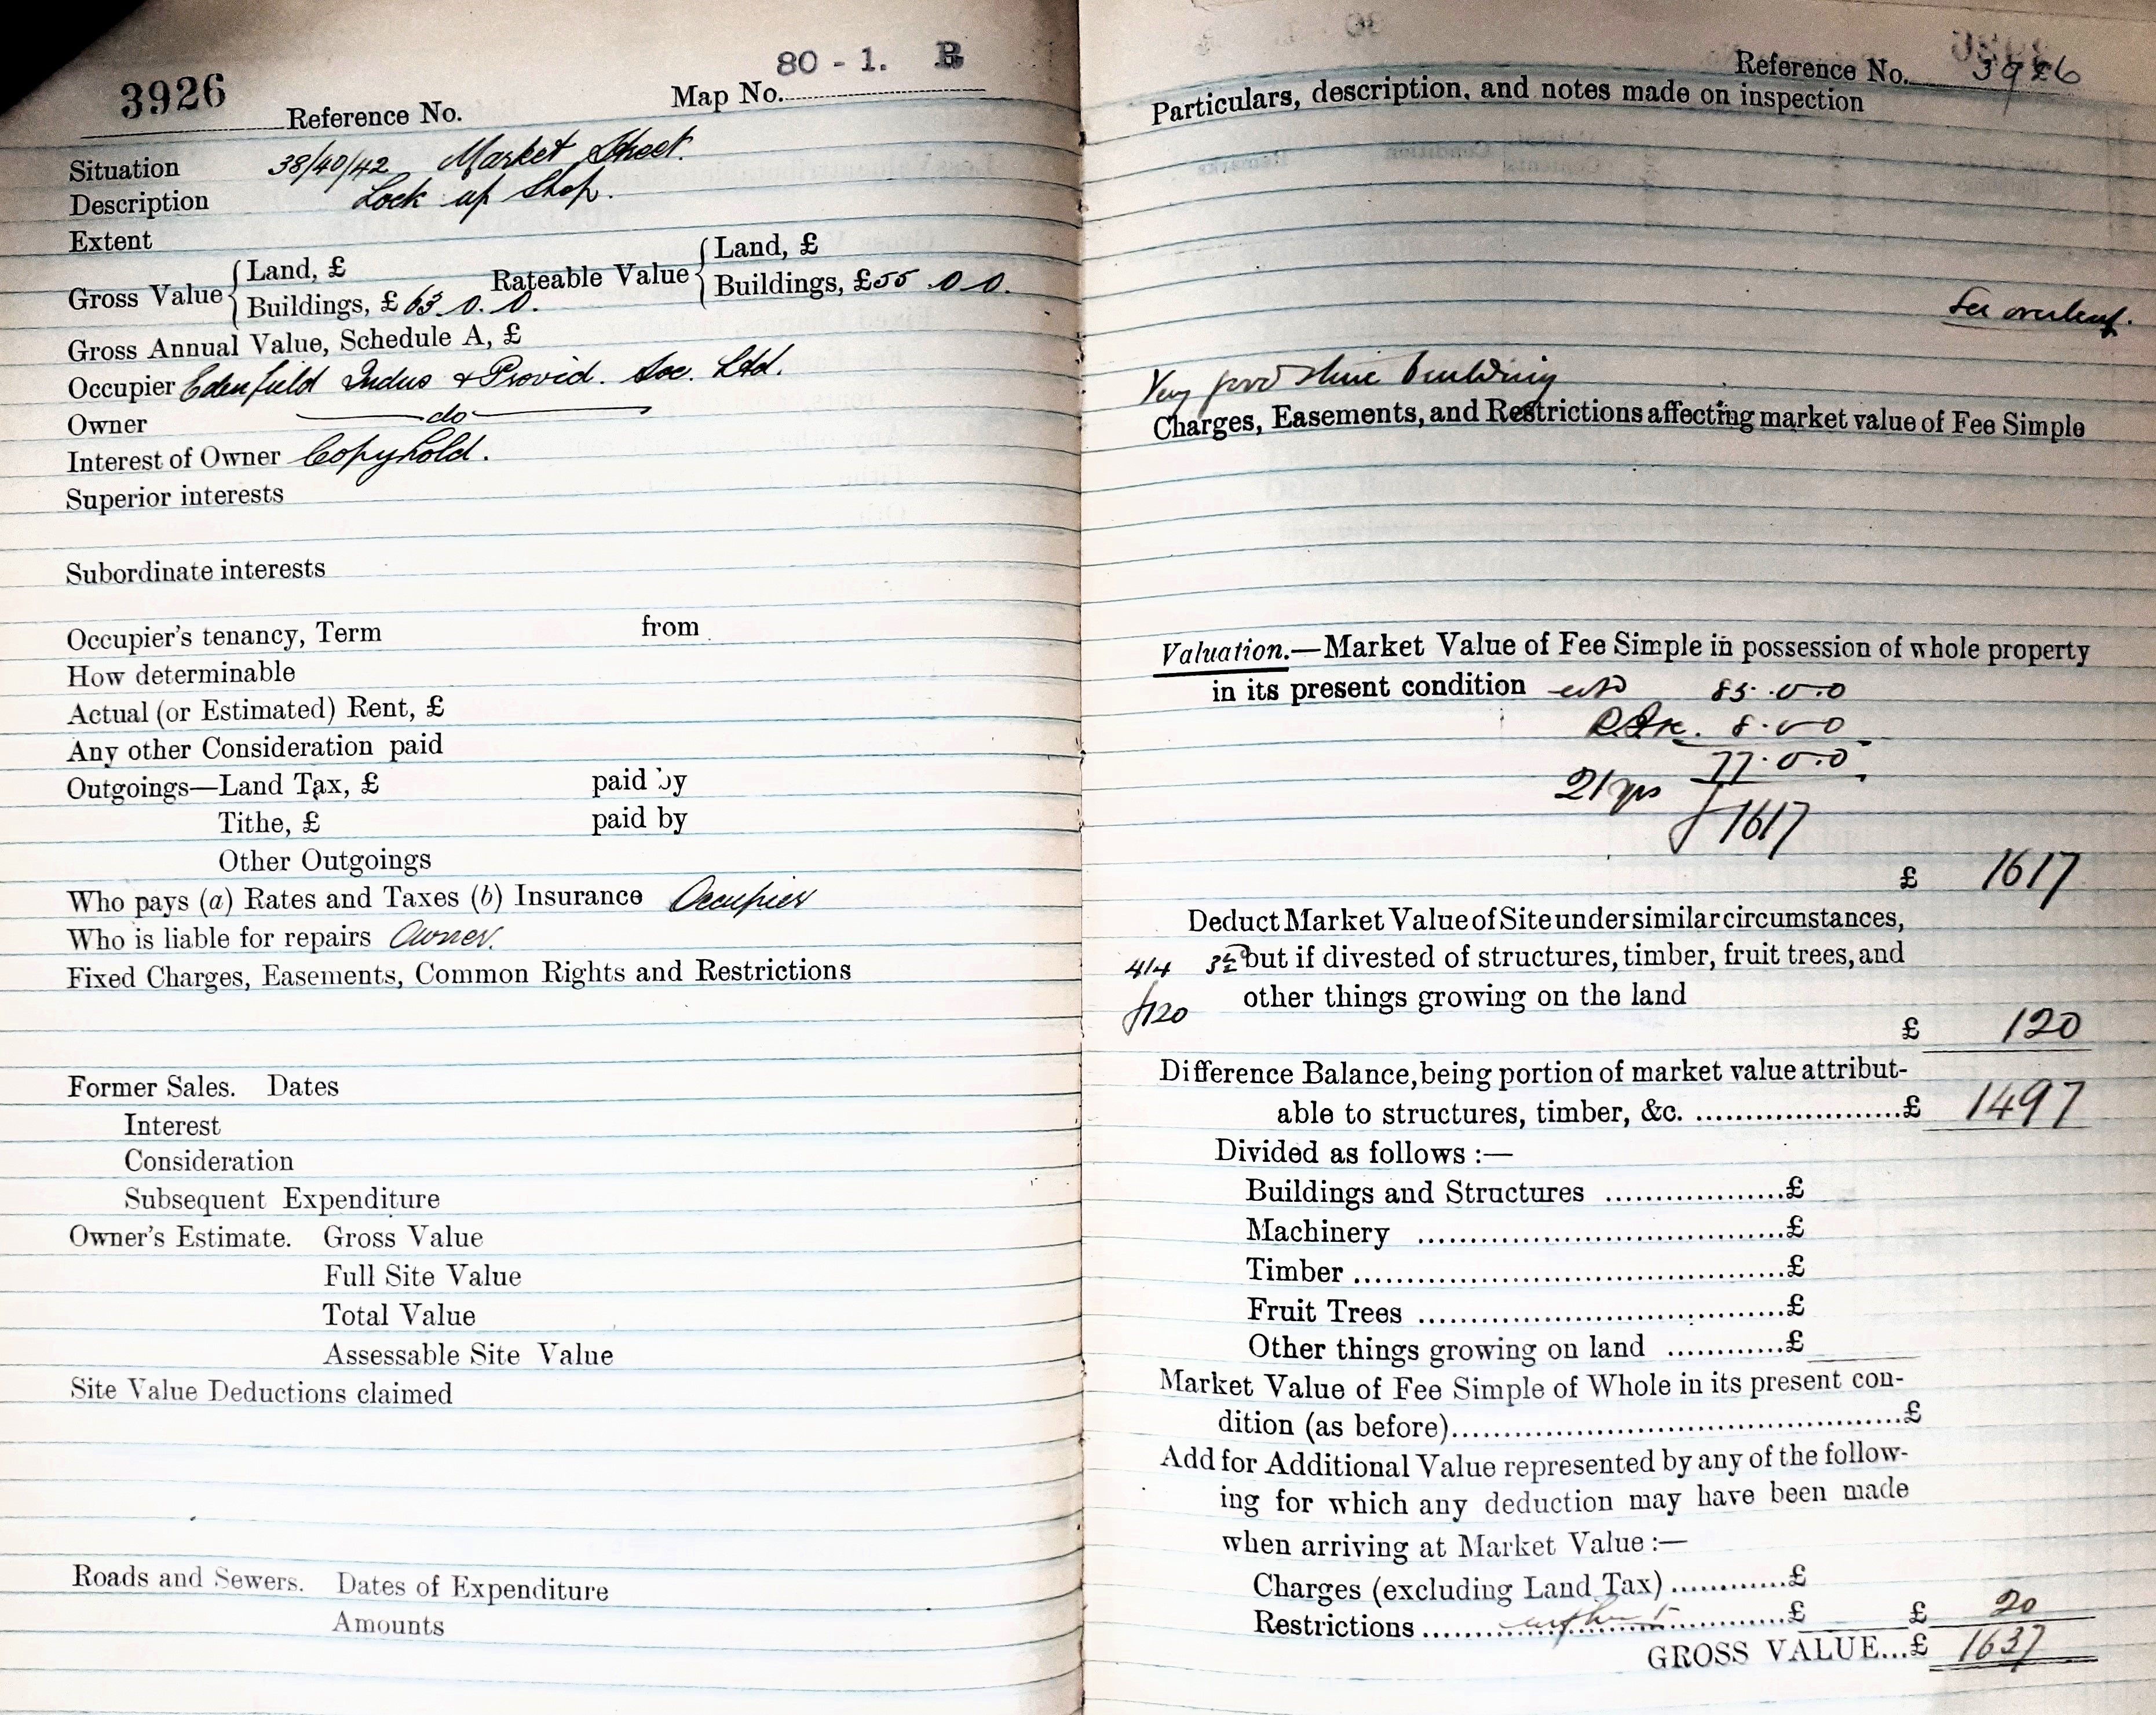 80 - 1. B
3926 Reference No. Map No.
Situation 38/40/42 Market Street.
Description Lock up Shop.
Extent
Gross Value { Land, £
Buildings, £ 63. 0. 0.
Rateable Value { Land, £
Buildings, £55. 0 0.
Gross Annual Value, Schedule A, £
Occupier Edenfield Indus & Provid. Soc. Ltd.
Owner do
Interest of Owner Copyhold.
Superior interests
Subordinate interests
Occupier's tenancy, Term from
How determinable
Actual (or Estimated) Rent, £
Any other Consideration paid
Outgoings—Land Tax, £ paid by
Tithe, £ paid by
Other Outgoings
Who pays (a) Rates and Taxes (b) Insurance Occupier
Who is liable for repairs Owner.
Fixed Charges, Easements, Common Rights and Restrictions
Former Sales. Dates
Interest
Consideration
Subsequent Expenditure
Owner's Estimate. Gross Value
Full Site Value
Total Value
Assessable Site Value
Site Value Deductions claimed
Roads and Sewers. Dates of Expenditure
Amounts
Reference No. 3926
Particulars, description, and notes made on inspection
See overleaf.
Very good stone building
Charges, Easements, and Restrictions affecting market value of Fee Simple
Valuation.—Market Value of Fee Simple in possession of whole property
in its present condition 85.0.0
8.0.0
77.0.0
21 yrs
£1617
£ 1617
Deduct Market Value of Site under similar circumstances,
414 but if divested of structures, timber, fruit trees, and
£120 other things growing on the land
£ 120
Difference Balance, being portion of market value attribut-
able to structures, timber, &c. ....................£ 1497
Divided as follows :—
Buildings and Structures ..................£
Machinery .....................................£
Timber ...........................................£
Fruit Trees .....................................£
Other things growing on land ............£
Market Value of Fee Simple of Whole in its present con-
dition (as before)............................................£
Add for Additional Value represented by any of the follow-
ing for which any deduction may have been made
when arriving at Market Value :—
Charges (excluding Land Tax) ............£
Restrictions ....................................£ £ 20
GROSS VALUE...£ 1637